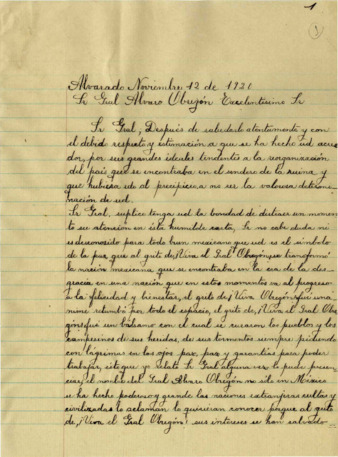 1
Alvarado Noviembre 12 de 1921
Sr Gral Alvaro Obregón Excelentísimo Sr
Sr Gral, Después de saludarlo atentamente y con
el debido respeto y estimación a que se ha hecho ud acree
dor, por sus grandes ideales tendentes a la reorganización
del país que se encontraba en el sendero de la ruina y
que hubiera ido al precipicio a no ser la valerosa determi
nación de ud.
Sr Gral, suplico tenga ud la bondad de distraer un momen
to su atencion en esta humilde carta, Sr no cabe duda ni
es desconosido para todo buen mexicano que ud es el simbolo
de la paz, que al grito de, ¡Viva el Gral Obregón, se transformó
la nación mexicana que se encontraba en la era de la des
gracia en una nación que en estos momentos va al progreso
a la felicidad y bienestar, el grito de, ¡Viva Obregón fue una
que retumbó por todo el espacio, el grito de, ¡Viva el Gral Obre
gón fue un bálsamo con el cual se curaron los pueblos y los
campecinos de sus heridas, de sus tormentos siempre pidiendo
con lágrimas en los ojos paz, paz y garantías para poder
trabajar, esto que yo relato Sr Gral alguna vez lo pudo presen
ciar, el nombre del Gral Alvaro Obregón no solo en México
se ha hecho poderoso y grande las naciones extranjeras cultas y
civilizadas lo aclaman lo quisieran conocer porque al grito
de, ¡Viva, el Gral Obregón! sus intereses se han salvado